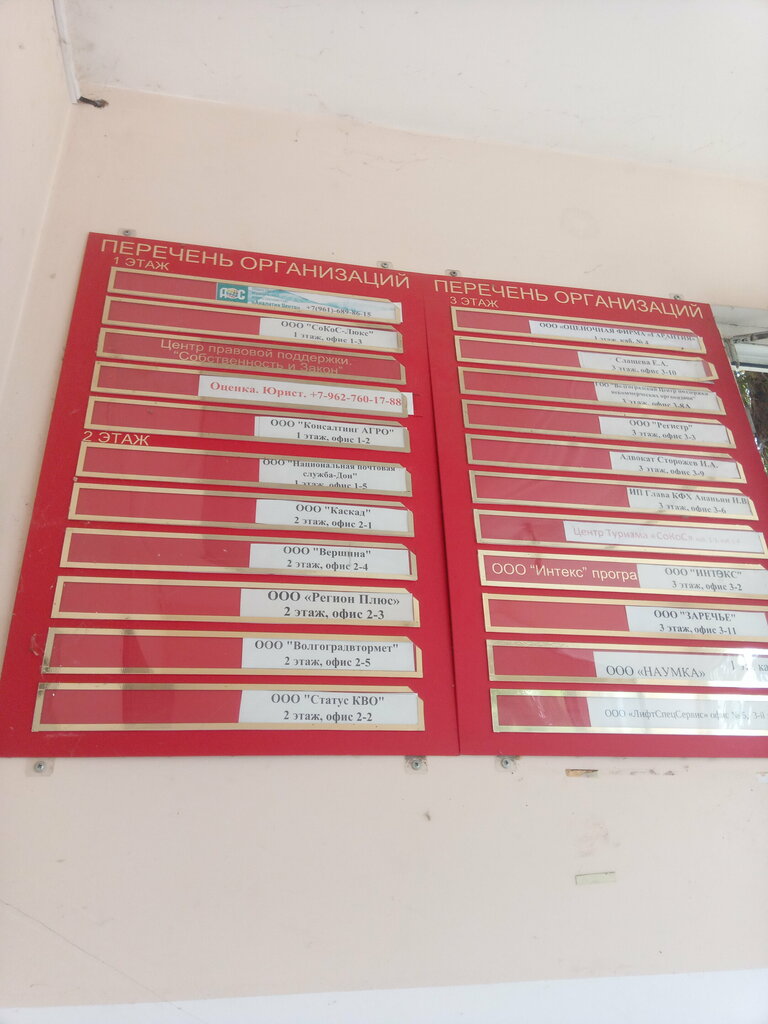 ПЕРЕЧЕНЬ ОРГАНИЗАЦИЙ
1 ЭТАЖ
+7(961)-689-86-18
ООО "СоКоС-Люкс"
1 этаж, офис 1-3
Центр правовой поддержки.
"Собственность и Закон"
Оценка. Юрист. +7-962-760-17-88
ООО "Консалтинг АГРО"
1 этаж, офис 1-2
2 ЭТАЖ
ООО "Национальная почтовая
служба-Дон"
1 этаж, офис 1-5
ООО "Каскад"
2 этаж, офис 2-1
ООО "Вершина"
2 этаж, офис 2-4
ООО «Регион Плюс»
2 этаж, офис 2-3
ООО "Волгоградвтормет"
2 этаж, офис 2-5
ООО "Статус КВО"
2 этаж, офис 2-2
ПЕРЕЧЕНЬ ОРГАНИЗАЦИЙ
3 ЭТАЖ
ООО «ОЦЕНОЧНАЯ ФИРМА «ГАРАНТИЯ»
1 этаж, каб. № 4
Слащева Е.А.
3 этаж, офис 3-10
ООО "Волгоградский Центр поддержки
некоммерческих организаций"
3 этаж, офис 3-8А
ООО "Регистр"
3 этаж, офис 3-3
Адвокат Сторожев И.А.
3 этаж, офис 3-9
ИП Глава КФХ Ананьин И.В
3 этаж, офис 3-6
Центр Туризма «СоКоС»
ООО "Интекс" програ
ООО "ИНТЭКС"
3 этаж, офис 3-2
ООО "ЗАРЕЧЬЕ"
3 этаж, офис 3-11
ООО «НАУМКА»
ООО «ЛифтСпецСервис» офис №5, 3-й